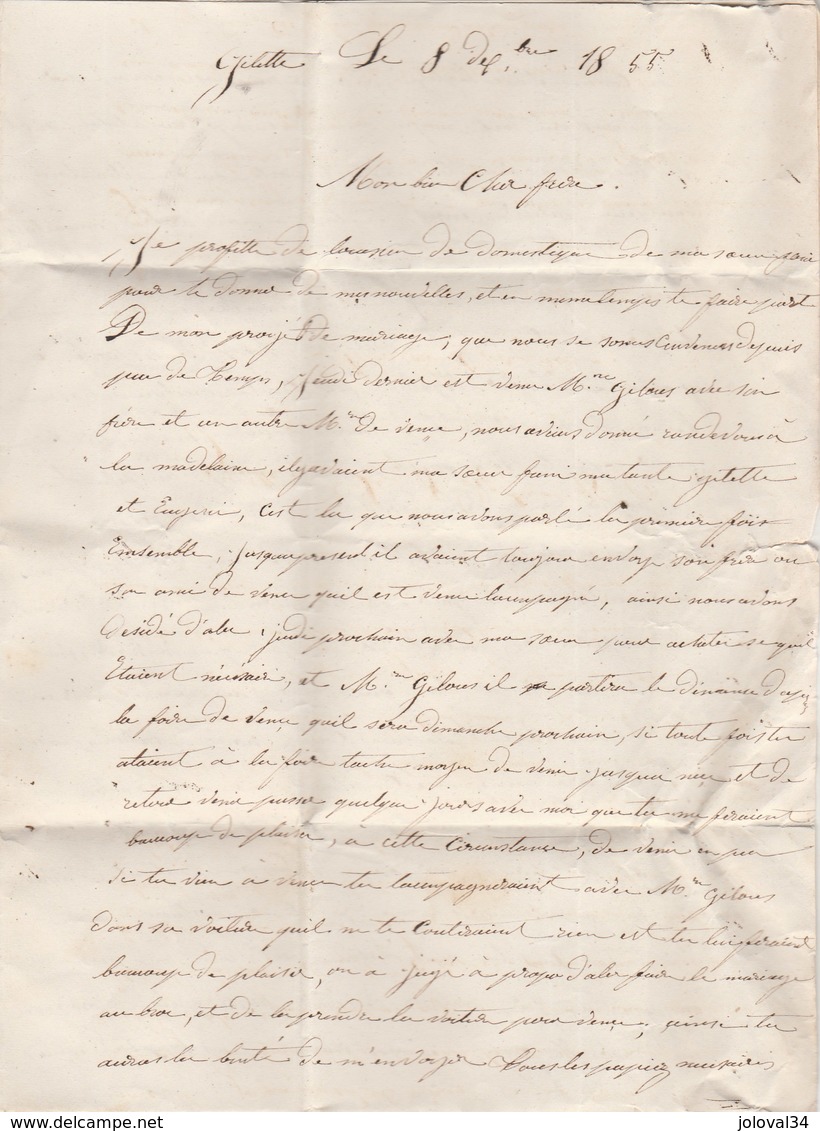 Gilette Le 8 de7.bre 1855
Mon bien Cher frere.
Je profitte de locasion de domestique de ma sœur
pour te donner de mes nouvelles, et en meme temps te faire part
De mon projét de mariage, que nous se somes Convenus depuis
peu de temps, Jeudi dernier est venu M.r Gilous avec son
frere et un autre M.r de vence, nous avions donné randevous à
la madelaine, ilyavaient ma sœur fani ma tante gilette
et Eugeni, C'est la que nous avons parlé la premiere fois
Ensemble, Jusqua present il avaient toujour envoyé son frere ou
son ami de vence quil est venu lacompagné, ainsi nous avons
désidé d'aler jeudi prochain avec ma sœur pour acheter se quil
Etaient nécésaire, et M.r Gilous il partira le dimanche
la foire de vence quil sera dimanche prochain, si toute fois tu
ataient à la foire tache moyen de venir jusqua et de
retour venir passer quelque jours avec moi que tu me feraient
beaucoup de plaisir, à cette Circonstance, de venir un peu
si tu vien à vence tu lacompagneraient avec M.r Gilous
dans sa voiture quil ne te Couteraient rien et tu lui feraient
beaucoup de plaisir, on à jujé à propo d'aler faire le mariage
au broc, et de la prendre la voiture pour vence, ainsi tu
auras la bonté de m'envoyer Tous les papiez nécésaires
joloval34